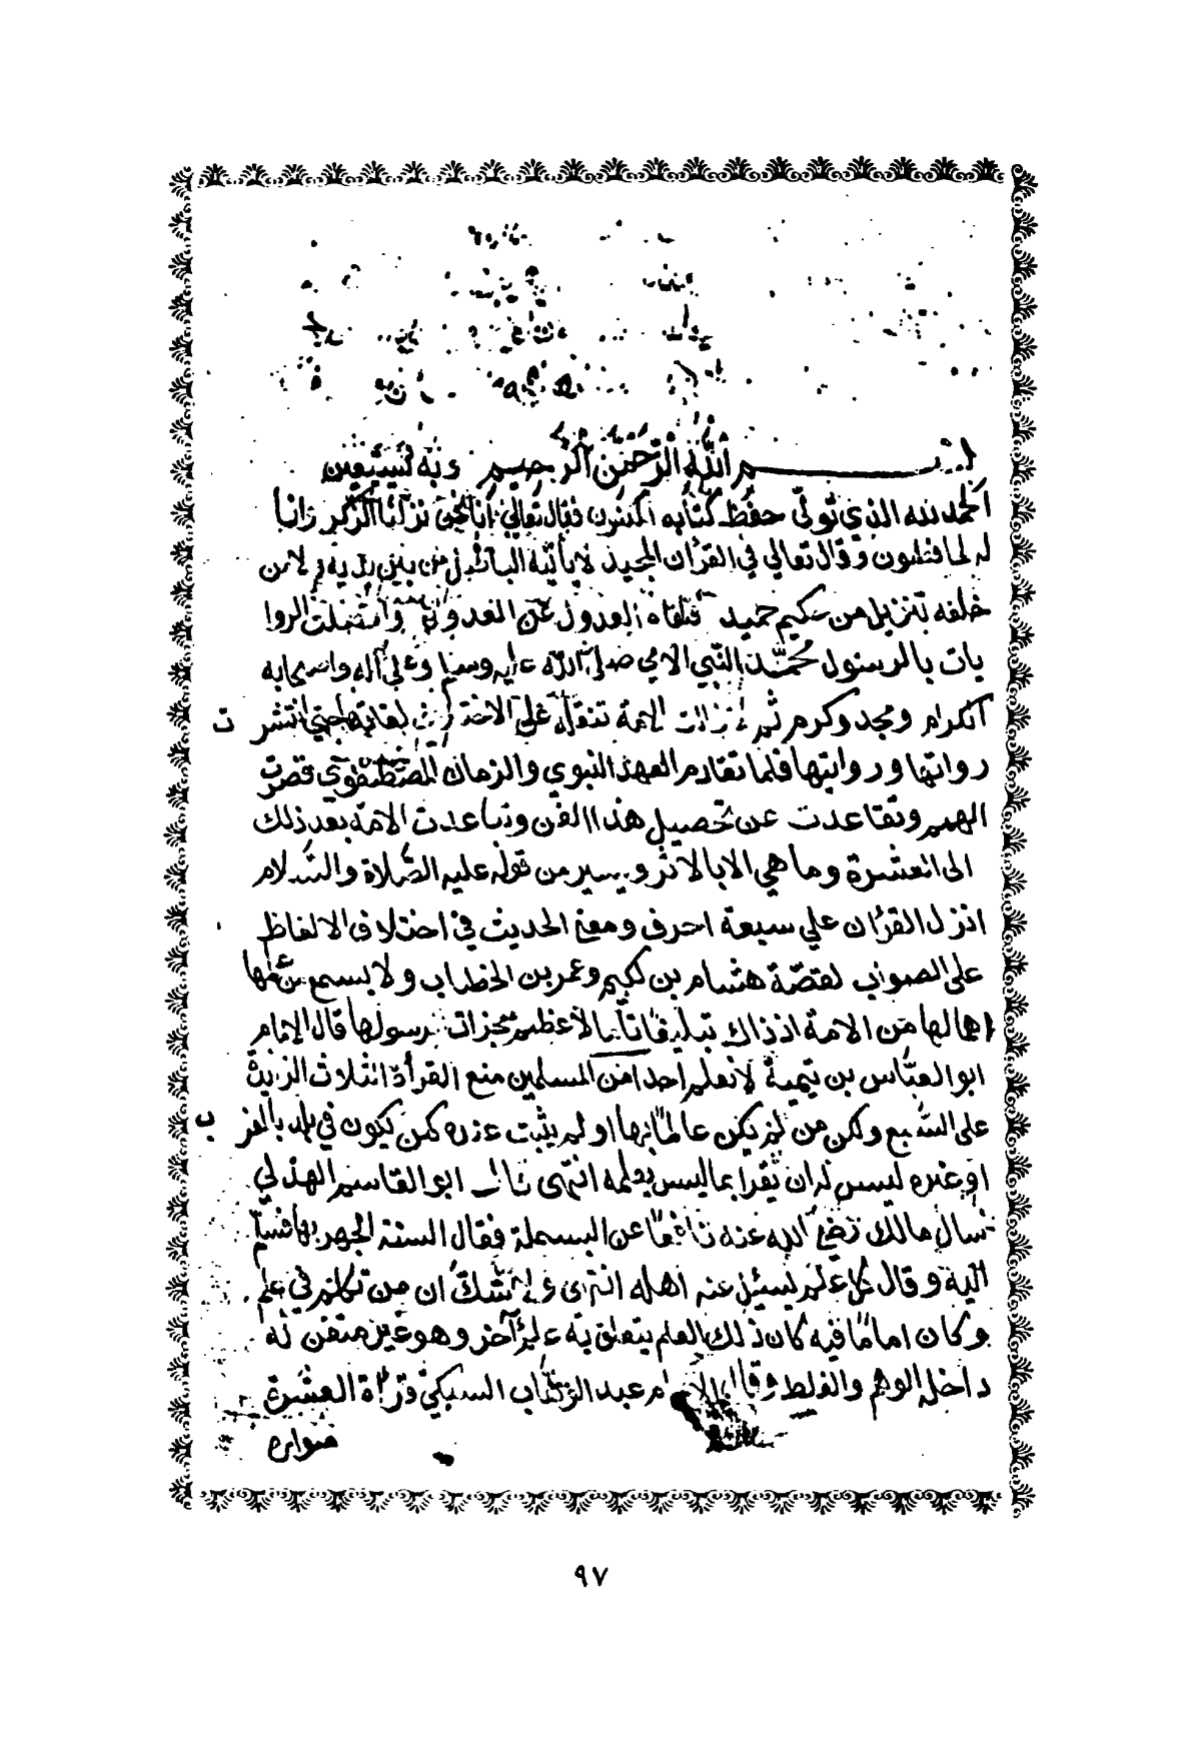 بسم الله الرحمن الرحيم وبه نستعين
الحمد لله الذي تولى حفظ كتابه المكنون فقال تعالى انا نحن نزلنا الذكر وانا
له لحافظون وقال تعالي في القرآن المجيد لا يأتيه الباطل من بين يديه ولا من
خلفه تنزيل من حكيم حميد فتلقاه العدول عن العدول واتصلت الروا
يات بالرسول محمد النبي الامي صلى الله عليه وسلم وعلى آله واصحابه
الكرام ومجد وكرم ثم لم تزلت الامة تنقله على الاختلاف لغاتها حتى انتشرت
رواتها وروايتها فلما تقادم العهد النبوي والزمان المصطفوي قصرت
الهمم وتقاعدت عن تحصيل هذا الفن وتباعدت الامة بعد ذلك
الى العشرة وما هي الا بالاثر ويسير من قوله عليه الصلاة والسلام
انزل القرآن علي سبعة احرف ومعنى الحديث في اختلاف الالفاظ
على الصواب لقصة هشام بن حكيم وعمر بن الخطاب ولا يسمع من
اهالها من الامة اذ ذاك تبليغاتا بالاعظم معجزات رسولها قال الامام
ابو العباس بن تيمية لا نعلم احدا من المسلمين منع القرأة الثلاث الزايدة
على السبع ولكن من لم يكن عالما بها او لم يثبت عنده كمن يكون في بلد بالغرب
او غيره ليس له ان يقرا بما ليس يعلمه انتهى قال ابو القاسم الهذلي
سال مالك رضي الله عنه نافعا عن البسملة فقال السنة الجهر بها فسلم
اليه وقال كل علم يسئل عنه اهله انتهى ولا شك ان من تكلم في علم
وكان اماما فيه كان ذلك العلم يتعلق به علم آخر وهو غير متقن له
داخله الوهم والغلط وقال الامام عبد الوهاب السبكي قرأة العشرة
متواتره
٩٧